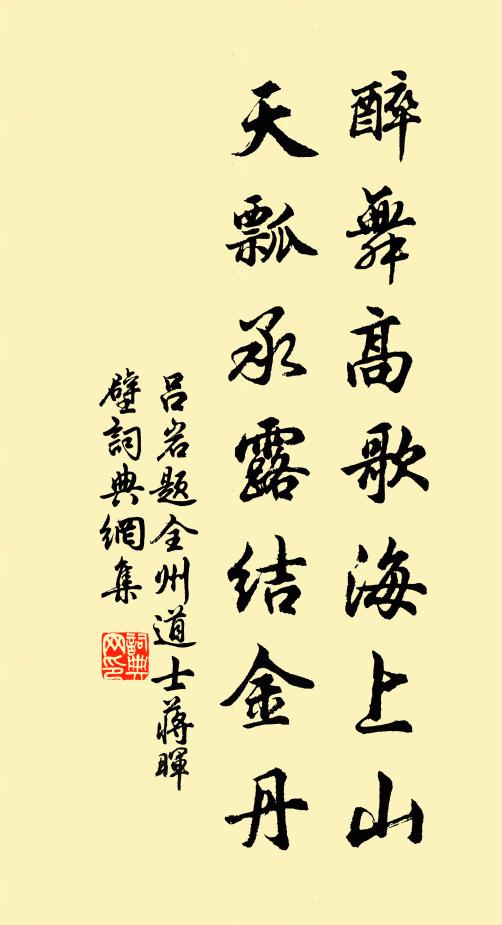 醉舞高歌海上山
天瓢承露結金丹
吕岩题全州道士蔣暉
壁詞典網集
詞典
网印